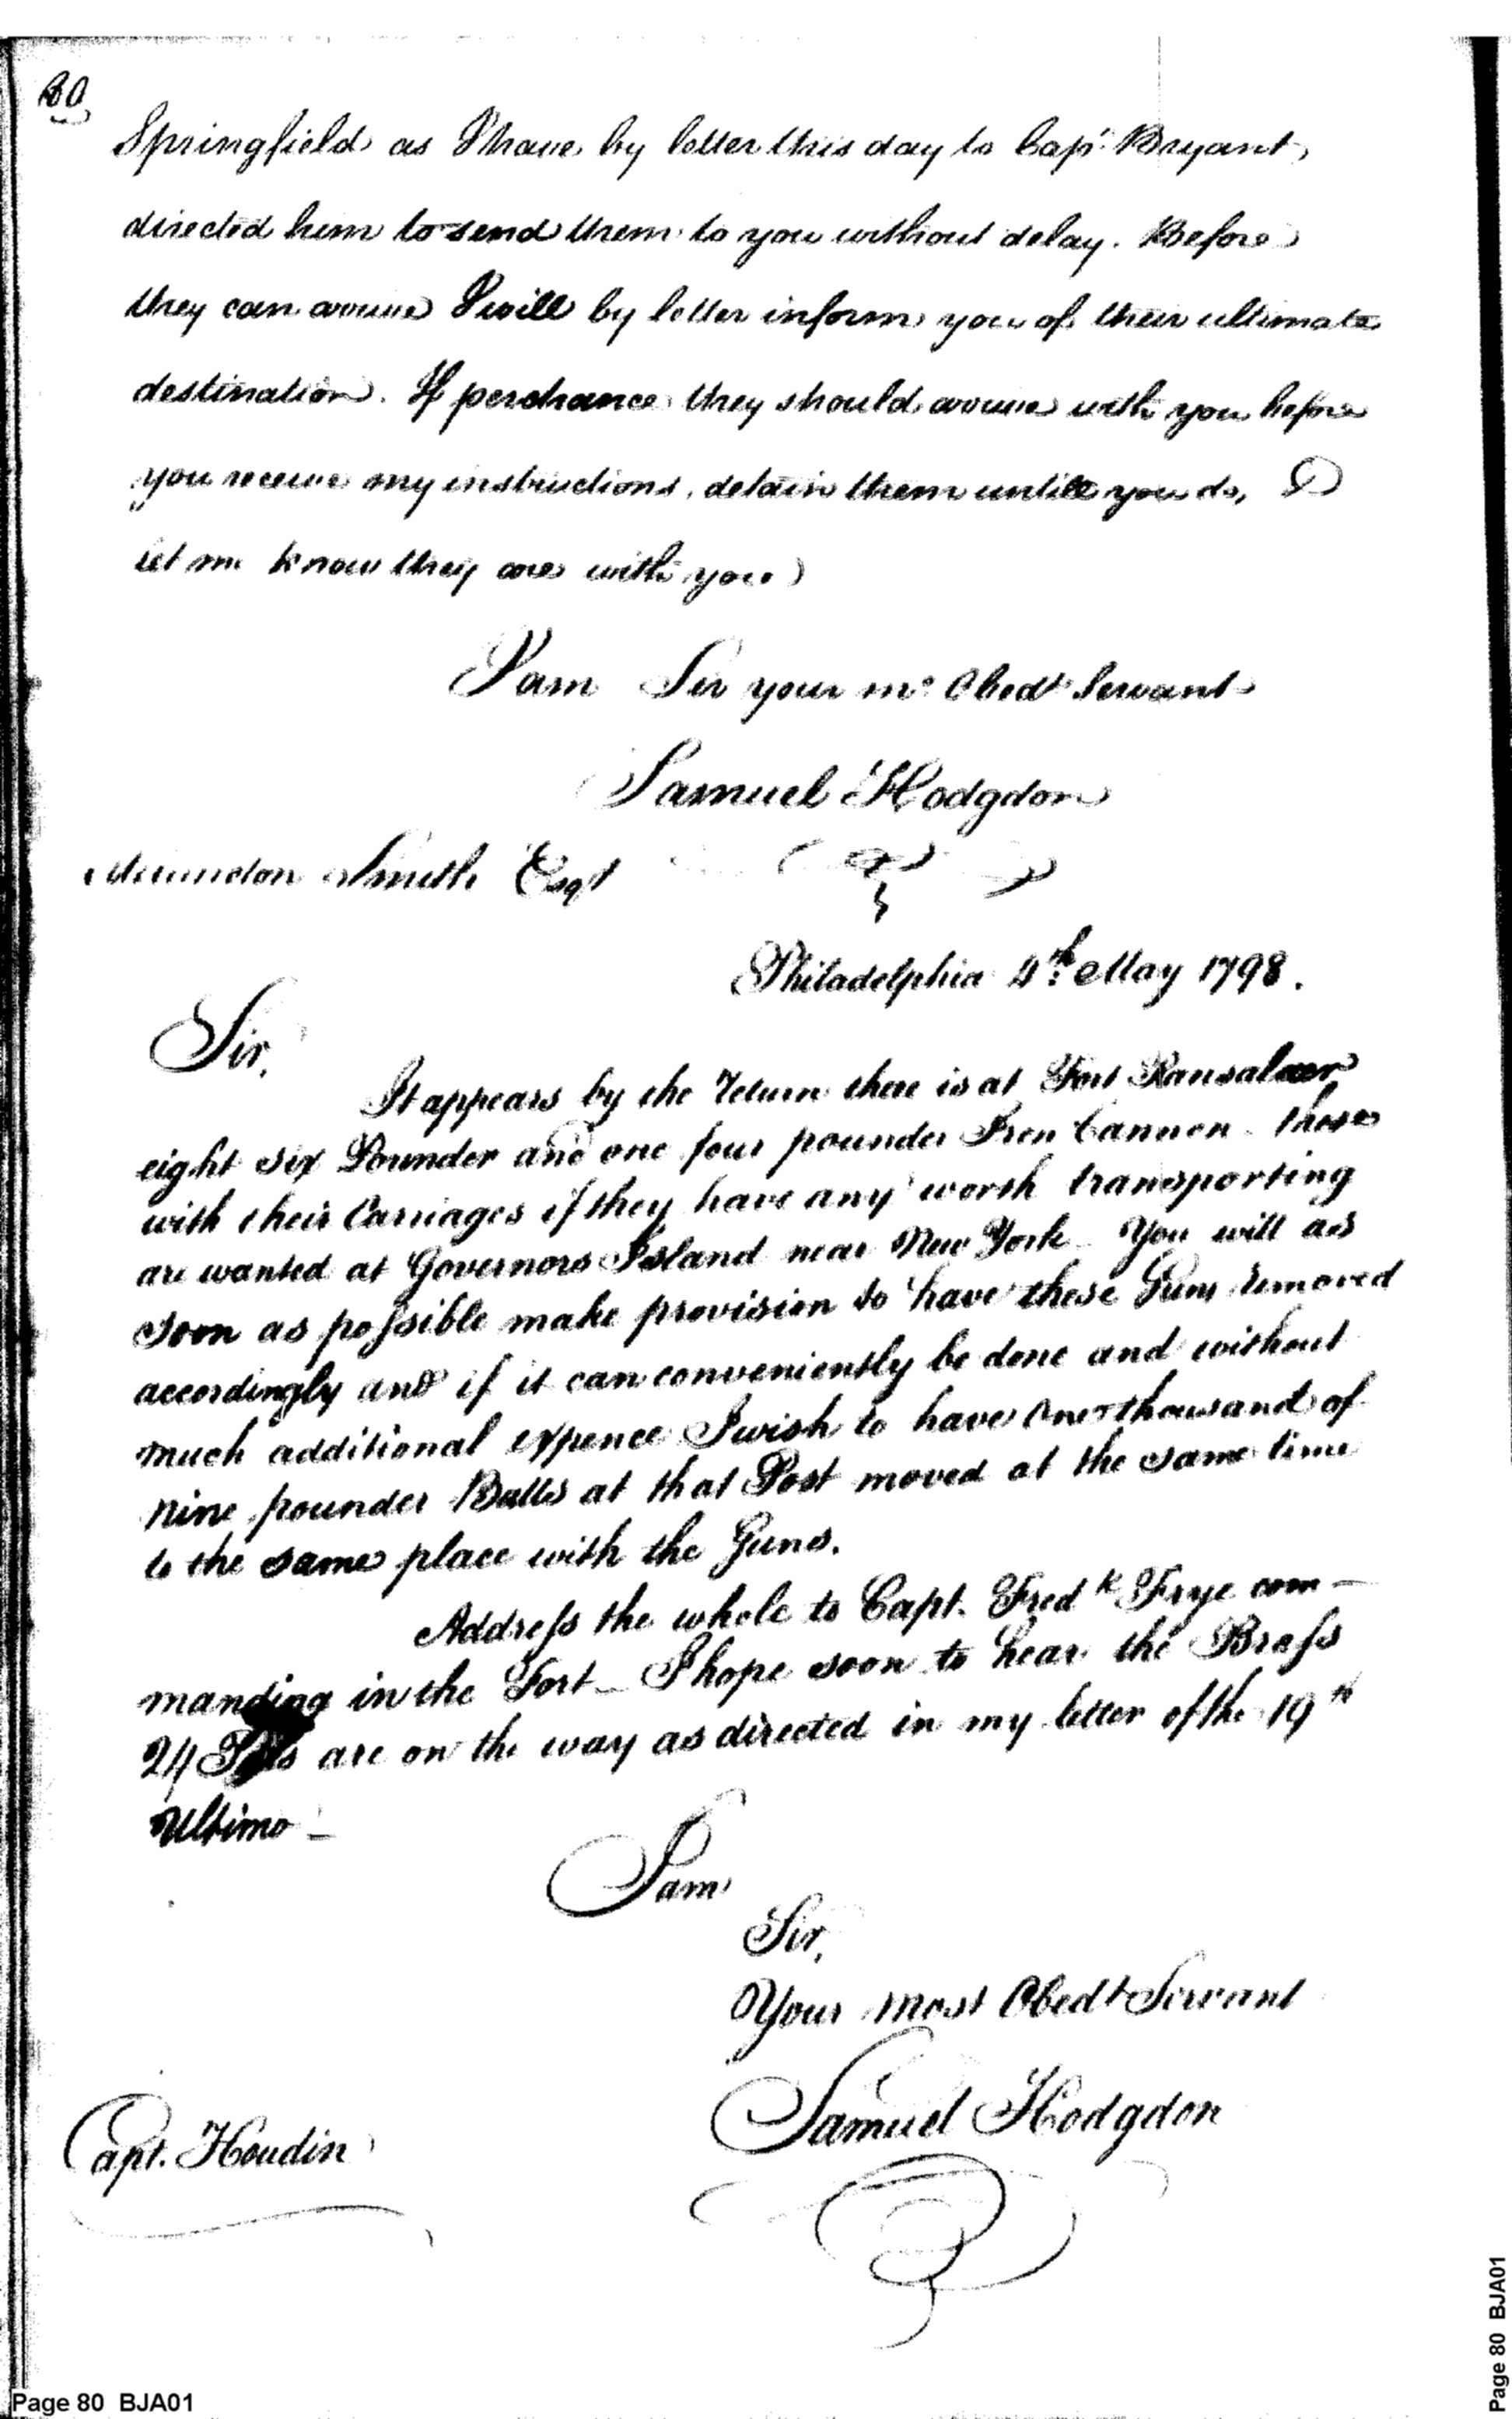 80
Springfield as I have by letter this day to Capt. Bryant
directed him to send them to you without delay. Before
they can arrive I will by letter inform you of their ultimate
destination. If perchance they should arrive with you before
you receive my instructions, detain them untill you do, &
let me know they are with you
I am Sir your mo. Obedt Servant
Samuel Hodgdon
Smith Esqr
Philadelphia 4th May 1798.
Sir,
It appears by the return there is at Fort Ransalaer
eight six Pounder and one four pounder Iron Cannon - those
with their Carriages if they have any worth transporting
are wanted at Governors Island near New York - You will as
soon as possible make provision to have these Guns removed
accordingly and if it can conveniently be done and without
much additional expence I wish to have One thousand of
nine pounder Balls at that Post moved at the same time
to the same place with the Guns.
Address the whole to Capt. Fredk Frye com-
manding in the Fort - I hope soon to hear the Brass
24 are on the way as directed in my letter of the 19th
Ultimo -
I am
Sir,
Your most Obedt Servant
Samuel Hodgdon
Capt. Houdin
Page 80 BJA01
Page 80 BJA01